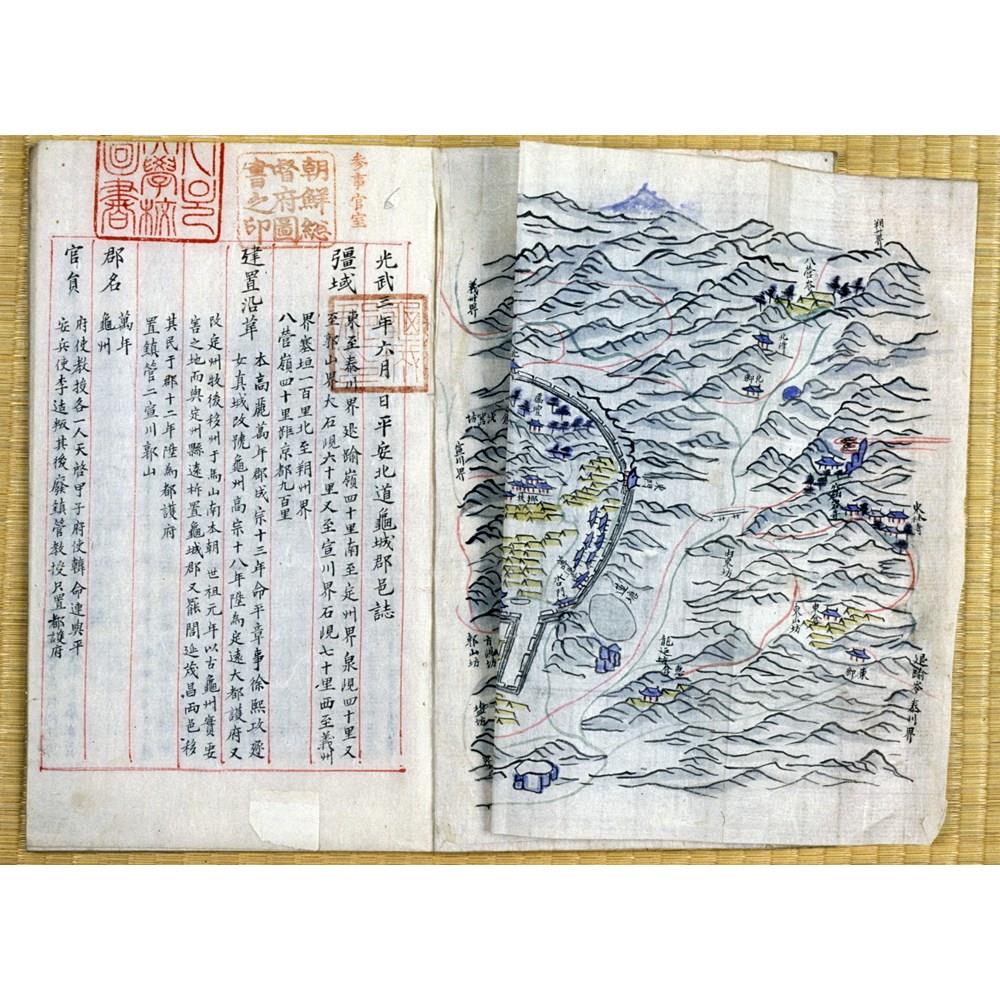 光武三年六月 日平安北道龜城郡邑誌
疆域
東至泰川界退踰嶺四十里南至定州界泉峴四十里又
至郭山界大石峴六十里又至宣川界石峴七十里西至義州
界塞垣一百里北至朔州界
八營嶺四十里距京都九百里
建置沿革
本高麗萬年郡成宗十三年命平章事徐熙攻逐
女真城改號龜州高宗十八年陞爲定遠大都護府又
改定州牧後移州于馬山南本朝 世祖元年以古龜州實要
害之地而與定州縣遠柝置龜城郡又罷閭延茂昌兩邑移
其民于郡十二年陞爲都護府
置鎮管二宣川郭山
郡名
萬年
龜州
官貟
府使敎授各一人天啓甲子府使韓命連與平
安兵使李适叛其後廢鎮管敎授只置都護府
参事官室
朝鮮総
督府圖
書之印
學校
圖書
6
朔州界
八營嶺
義州界
北倉
宣川界
郭山坊
東林寺
東倉
退踰嶺
泰川界